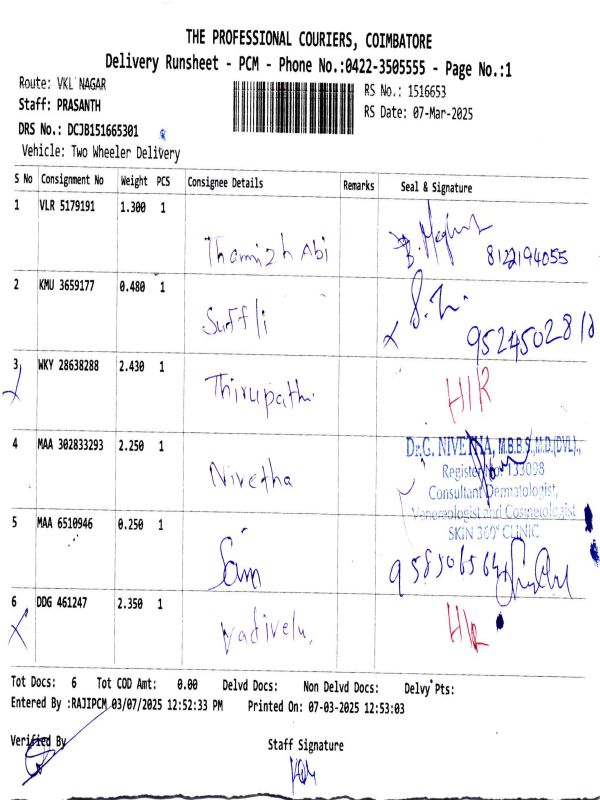 THE PROFESSIONAL COURIERS, COIMBATORE
Delivery Runsheet - PCM - Phone No.:0422-3505555 - Page No.:1
Route: VKL NAGAR
RS No.: 1516653
Staff: PRASANTH
RS Date: 07-Mar-2025
DRS No.: DCJB151665301
Vehicle: Two Wheeler Delivery
S No Consignment No Weight PCS Consignee Details Remarks Seal & Signature
1 VLR 5179191 1.300 1
Thamizh Abi 8122194055
2 KMU 3659177 0.480 1
95245028
3 WKY 28638288 2.430 1
Thirupathi H/R
4 MAA 302833293 2.250 1
Dr.G. NIVETHA, M.B.B.S.,M.D.(DVL).,
Register No: 133098
Nivetha
Consultant Dermatologist,
Venereologist and Cosmetologist
SKIN 360° CLINIC
5 MAA 6510946 0.250 1
Sam
6 DDG 461247 2.350 1
Vadivelu, H/R
Tot Docs: 6 Tot COD Amt: 0.00 Delvd Docs: Non Delvd Docs: Delvy Pts:
Entered By :RAJIPCM 03/07/2025 12:52:33 PM Printed On: 07-03-2025 12:53:03
Verified By
Staff Signature